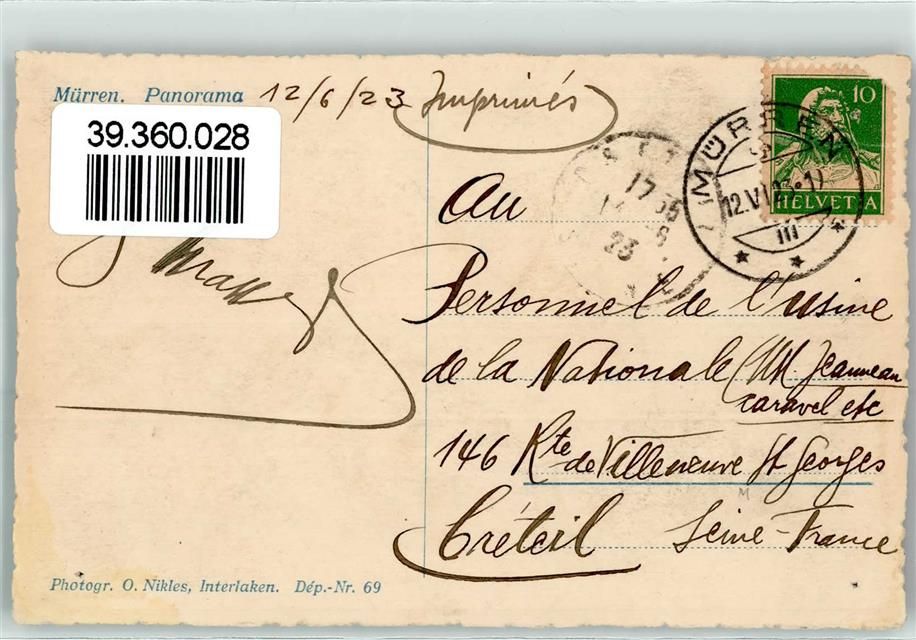 Mürren. Panorama 12/6/23 Imprimés
39.360.028
10
HELVETIA
MÜRREN
12.VI.23.-1
17 35
23
Au
Personnel de l'usine
de la Nationale (MM Jeanneau
caravel etc
146 Rte de Villeneuve St Georges
Créteil Seine-France
Photogr. O. Nikles, Interlaken. Dép.-Nr. 69